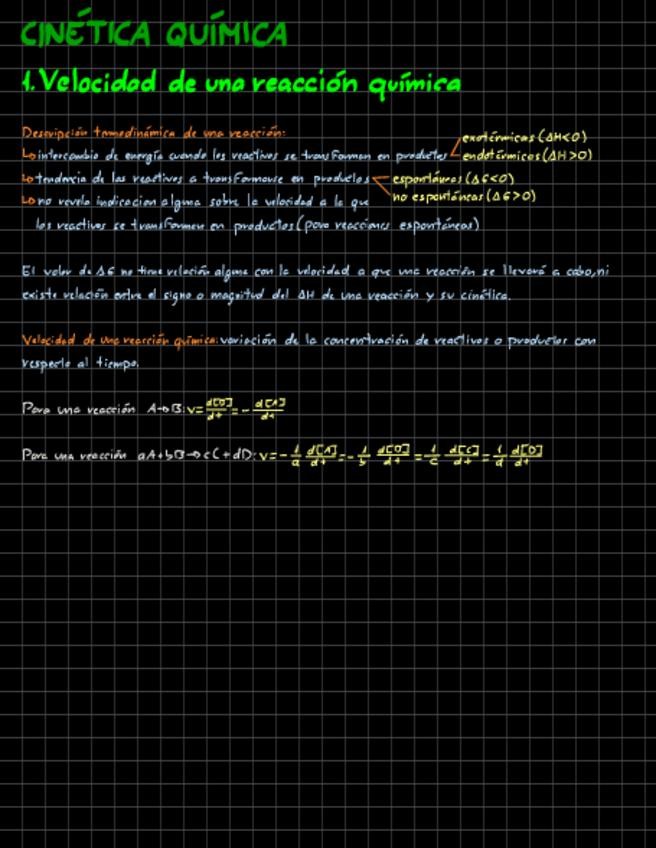 CINÉTICA QUÍMICA
1. Velocidad de una reacción química
Descripción termodinámica de una reacción:
↳ intercambio de energía cuando los reactivos se transforman en productos exotérmicas (ΔH<0)
endotérmicas (ΔH>0)
↳ tendencia de los reactivos a transformarse en productos espontáneas (ΔG<0)
no espontáneas (ΔG>0)
↳ no revela indicacion alguna sobre la velocidad a la que
los reactivos se transforman en productos (para reacciones espontáneas)
El valor de ΔG no tiene relación alguna con la velocidad a que una reacción se llevará a cabo, ni
existe relación entre el signo o magnitud del ΔH de una reacción y su cinética.
Velocidad de una reacción química: variación de la concentración de reactivos o productos con
respecto al tiempo.
Para una reacción A→B: v = d[B]/dt = - d[A]/dt
Para una reacción aA+bB→cC+dD: v = - 1/a d[A]/dt = - 1/b d[B]/dt = 1/c d[C]/dt = 1/d d[D]/dt